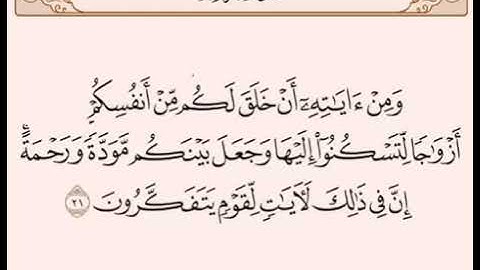 وَمِنْ ءَايَٰتِهِۦٓ أَنْ خَلَقَ لَكُم مِّنْ أَنفُسِكُمْ
أَزْوَٰجًا لِّتَسْكُنُوٓا۟ إِلَيْهَا وَجَعَلَ بَيْنَكُم مَّوَدَّةً وَرَحْمَةً ۚ
إِنَّ فِى ذَٰلِكَ لَءَايَٰتٍ لِّقَوْمٍ يَتَفَكَّرُونَ ٢١